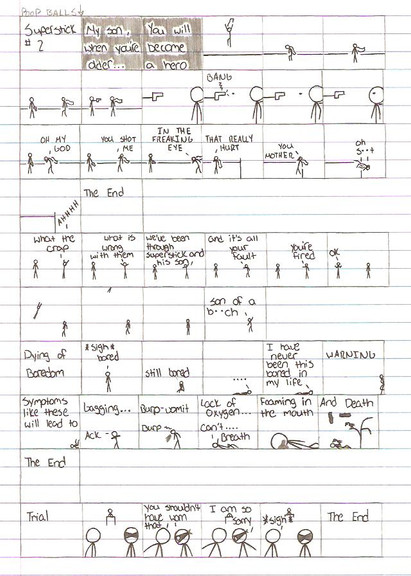 POOP BALLS
Superstick
# 2
My son,
when you're
older...
You will
become
a hero
BANG
OH MY
GOD
YOU SHOT
ME
IN THE
FREAKING
EYE
THAT REALLY
HURT
YOU
MOTHER
oh
s..t
AHHHH
The End
what the
crap
what is
wrong
with them
we've been
through
superstick and
his son,
And it's all
your
fault
You're
fired
OK
son of a
b..ch
Dying of
Boredom
*sigh*
bored
still bored
....
I have
never
been this
bored in
my life
WARNING
Symptoms
like these
will lead to
Gagging...
Ack
Burp-vomit
Burp
Lack of
Oxygen...
Can't....
Breath
Foaming in
the mouth
And Death
The End
Trial
You shouldn't
have worn
that
I am so
sorry
*sigh*
The End